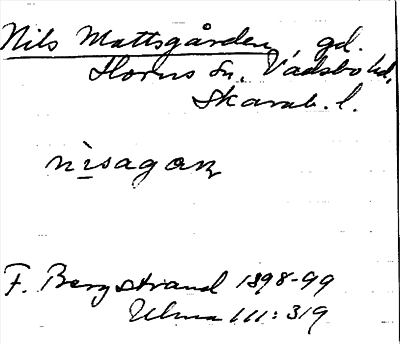 Nils Mattsgården, gd.
Horns sn, Vadsbo hd,
Skarab. l.
nisagaɽ
F. Bergstrand 1898-99
Ulma 111:319